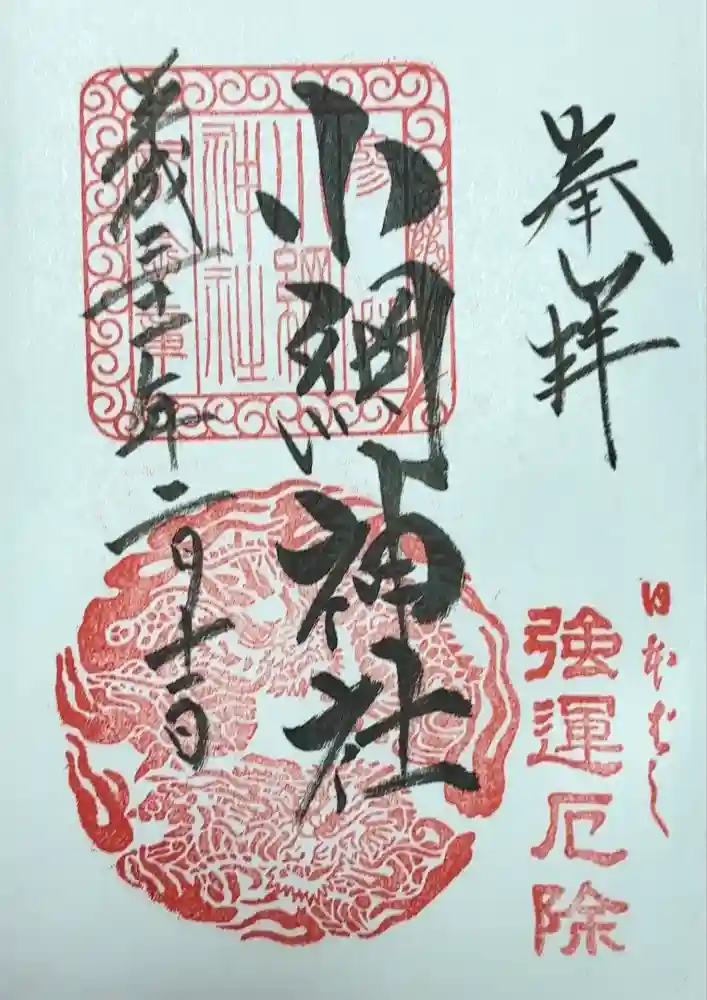 奉拝
日本ばし
強運厄除
小網神社
小網
神社
平成三十一年二月